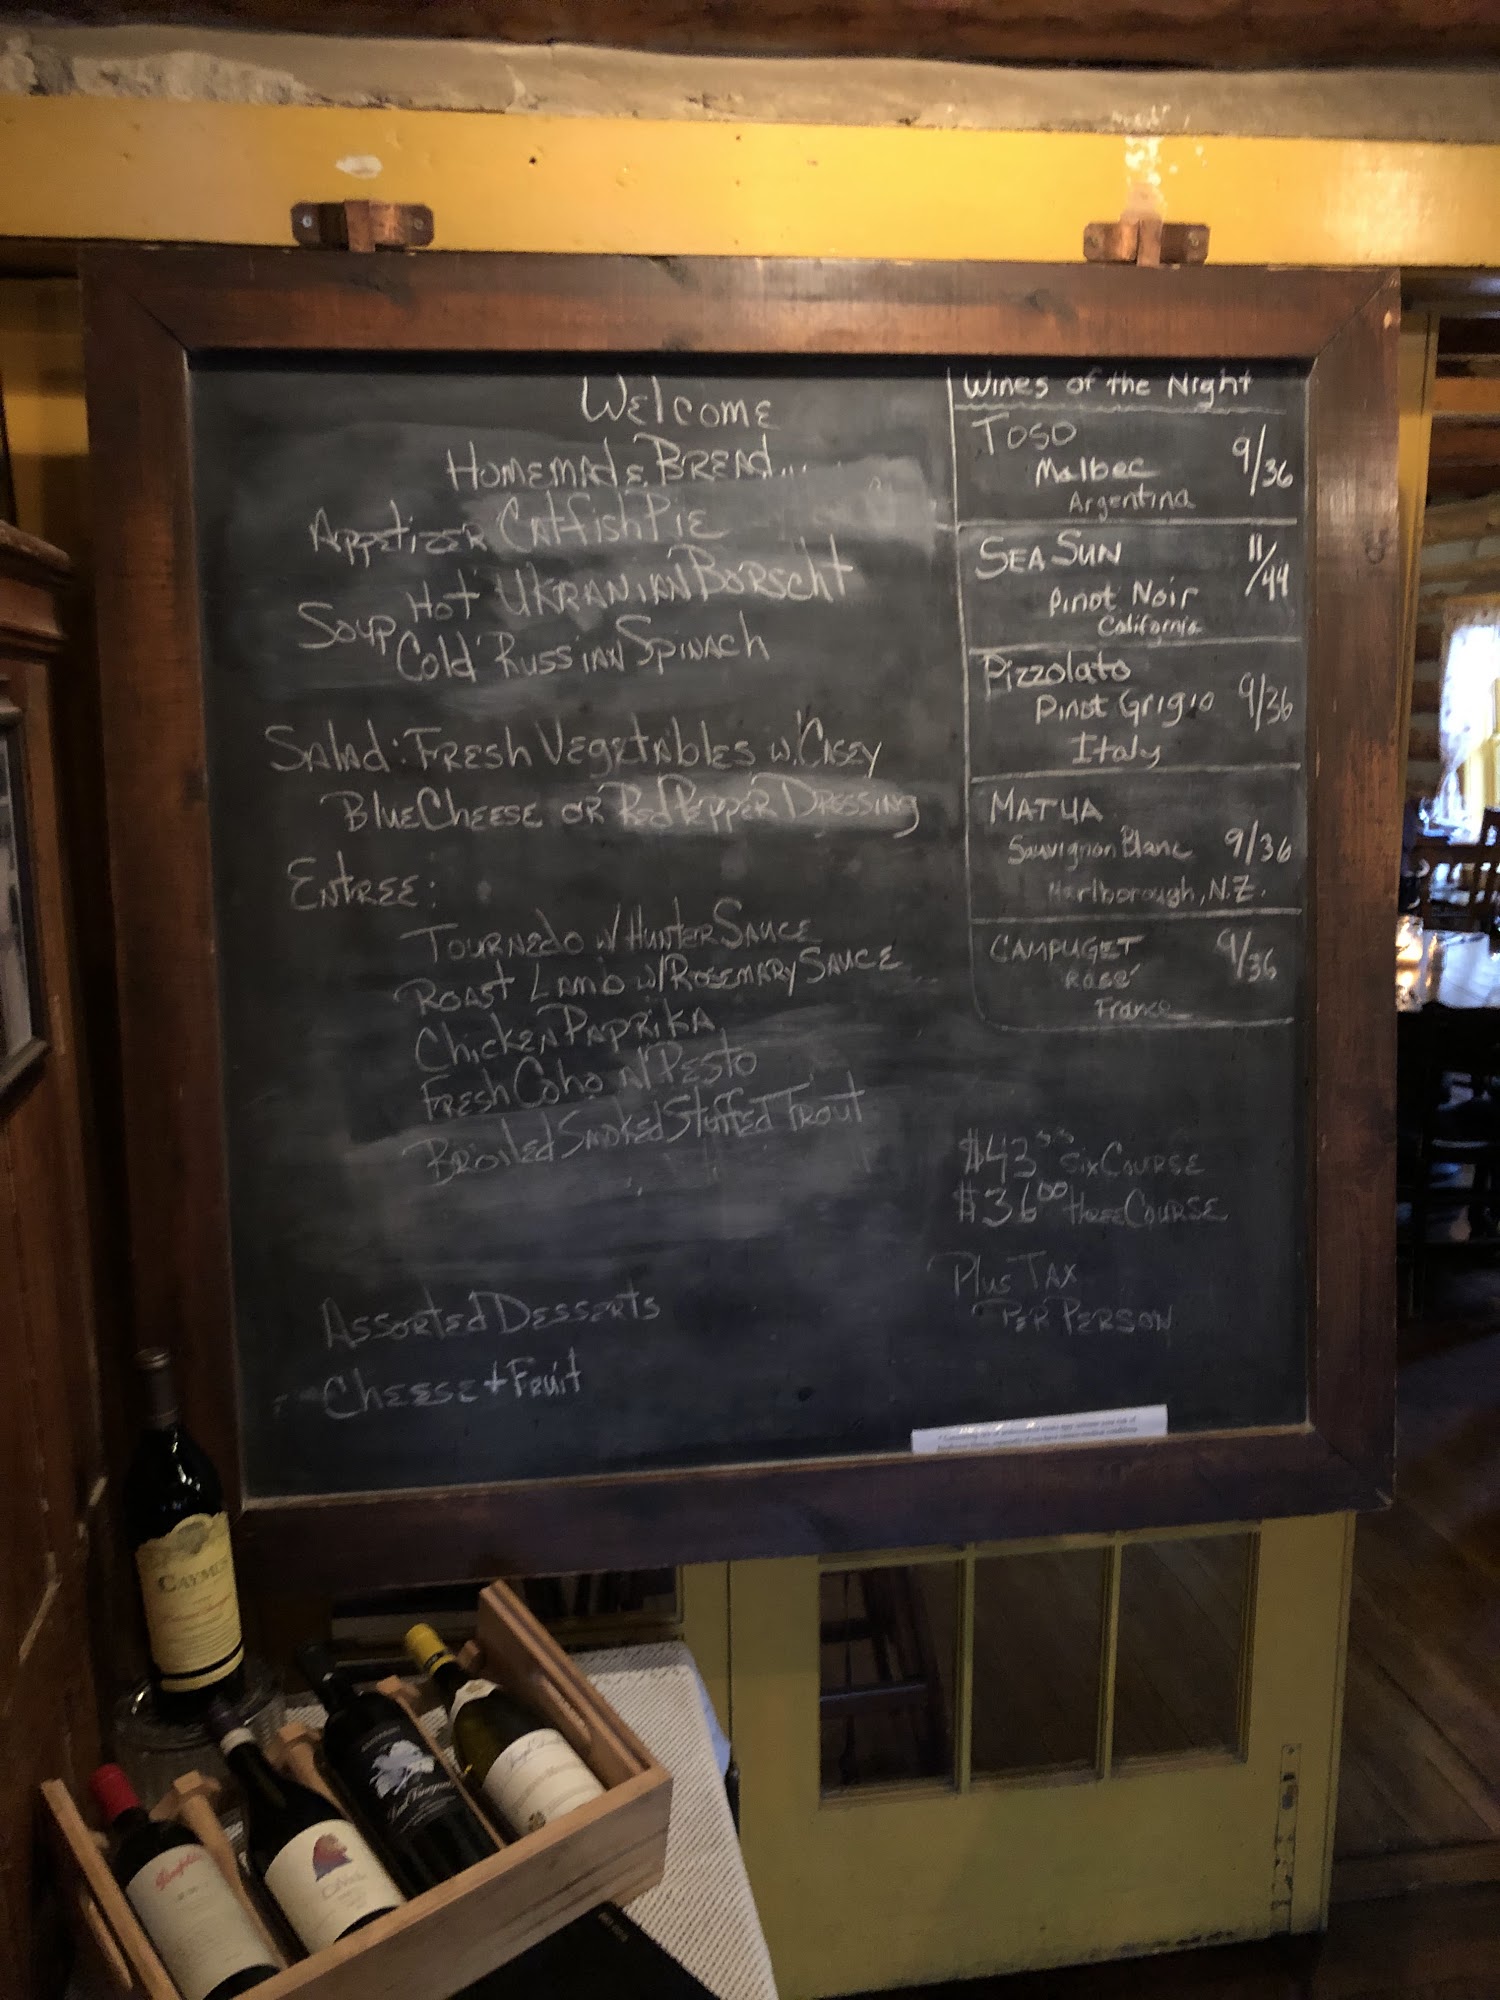 Welcome
Homemade Bread...
Appetizer Catfish Pie
Hot Ukranian Borscht
Soup
Cold Russian Spinach
Salad: Fresh Vegetables w. Casey
Blue Cheese or Red Pepper Dressing
Entree:
Tournedo w/ Hunter Sauce
Roast Lamb w/ Rosemary Sauce
Chicken Paprika
Fresh Coho w/ Pesto
Broiled Smoked Stuffed Trout
Assorted Desserts
Cheese + Fruit
Wines of the Night
Toso
Malbec 9/36
Argentina
Sea Sun 11/44
Pinot Noir
California
Pizzolato
Pinot Grigio 9/36
Italy
Matua
Sauvignon Blanc 9/36
Marlborough, N.Z.
Campuget 9/36
Rosé
France
$43 Six Course
$36.00 Three Course
Plus Tax
Per Person
Caymus